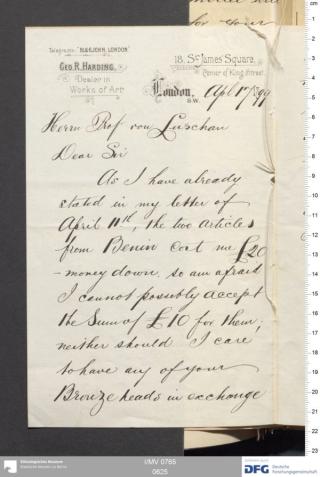 for your
Telegrams "NUDELOHN, LONDON"
GEO. R. HARDING.
Dealer in
Works of Art
18, St James' Square,
Corner of King Street.
London, Apl 17/99
S.W.
Herrn Prof von Luschan
Dear Sir
As I have already
stated in my letter of
April 11th, the two articles
from Benin cost me £20
- money down, so am afraid
I cannot possibly accept
the Sum of £10 for them,
neither should I care
to have any of your
Bronze heads in exchange
I/MV 0765
0625
Ethnologisches Museum
Staatliche Museen zu Berlin
DFG Deutsche
Forschungsgemeinschaft